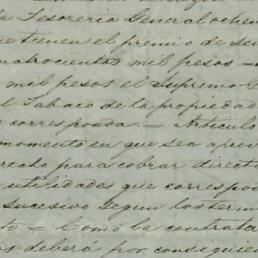 la Tesoreria General ochen
que tienen el premio de sei
cuatrocientos mil pesos —
mil pesos el Supremo
l Tabaco de la propiedad
corresponda — Articulo
momento en que sea aprov
recho para cobrar direct
utilidades que correspo
sucesivo segun los term
to — Como la contrata
os deberá por consiguien